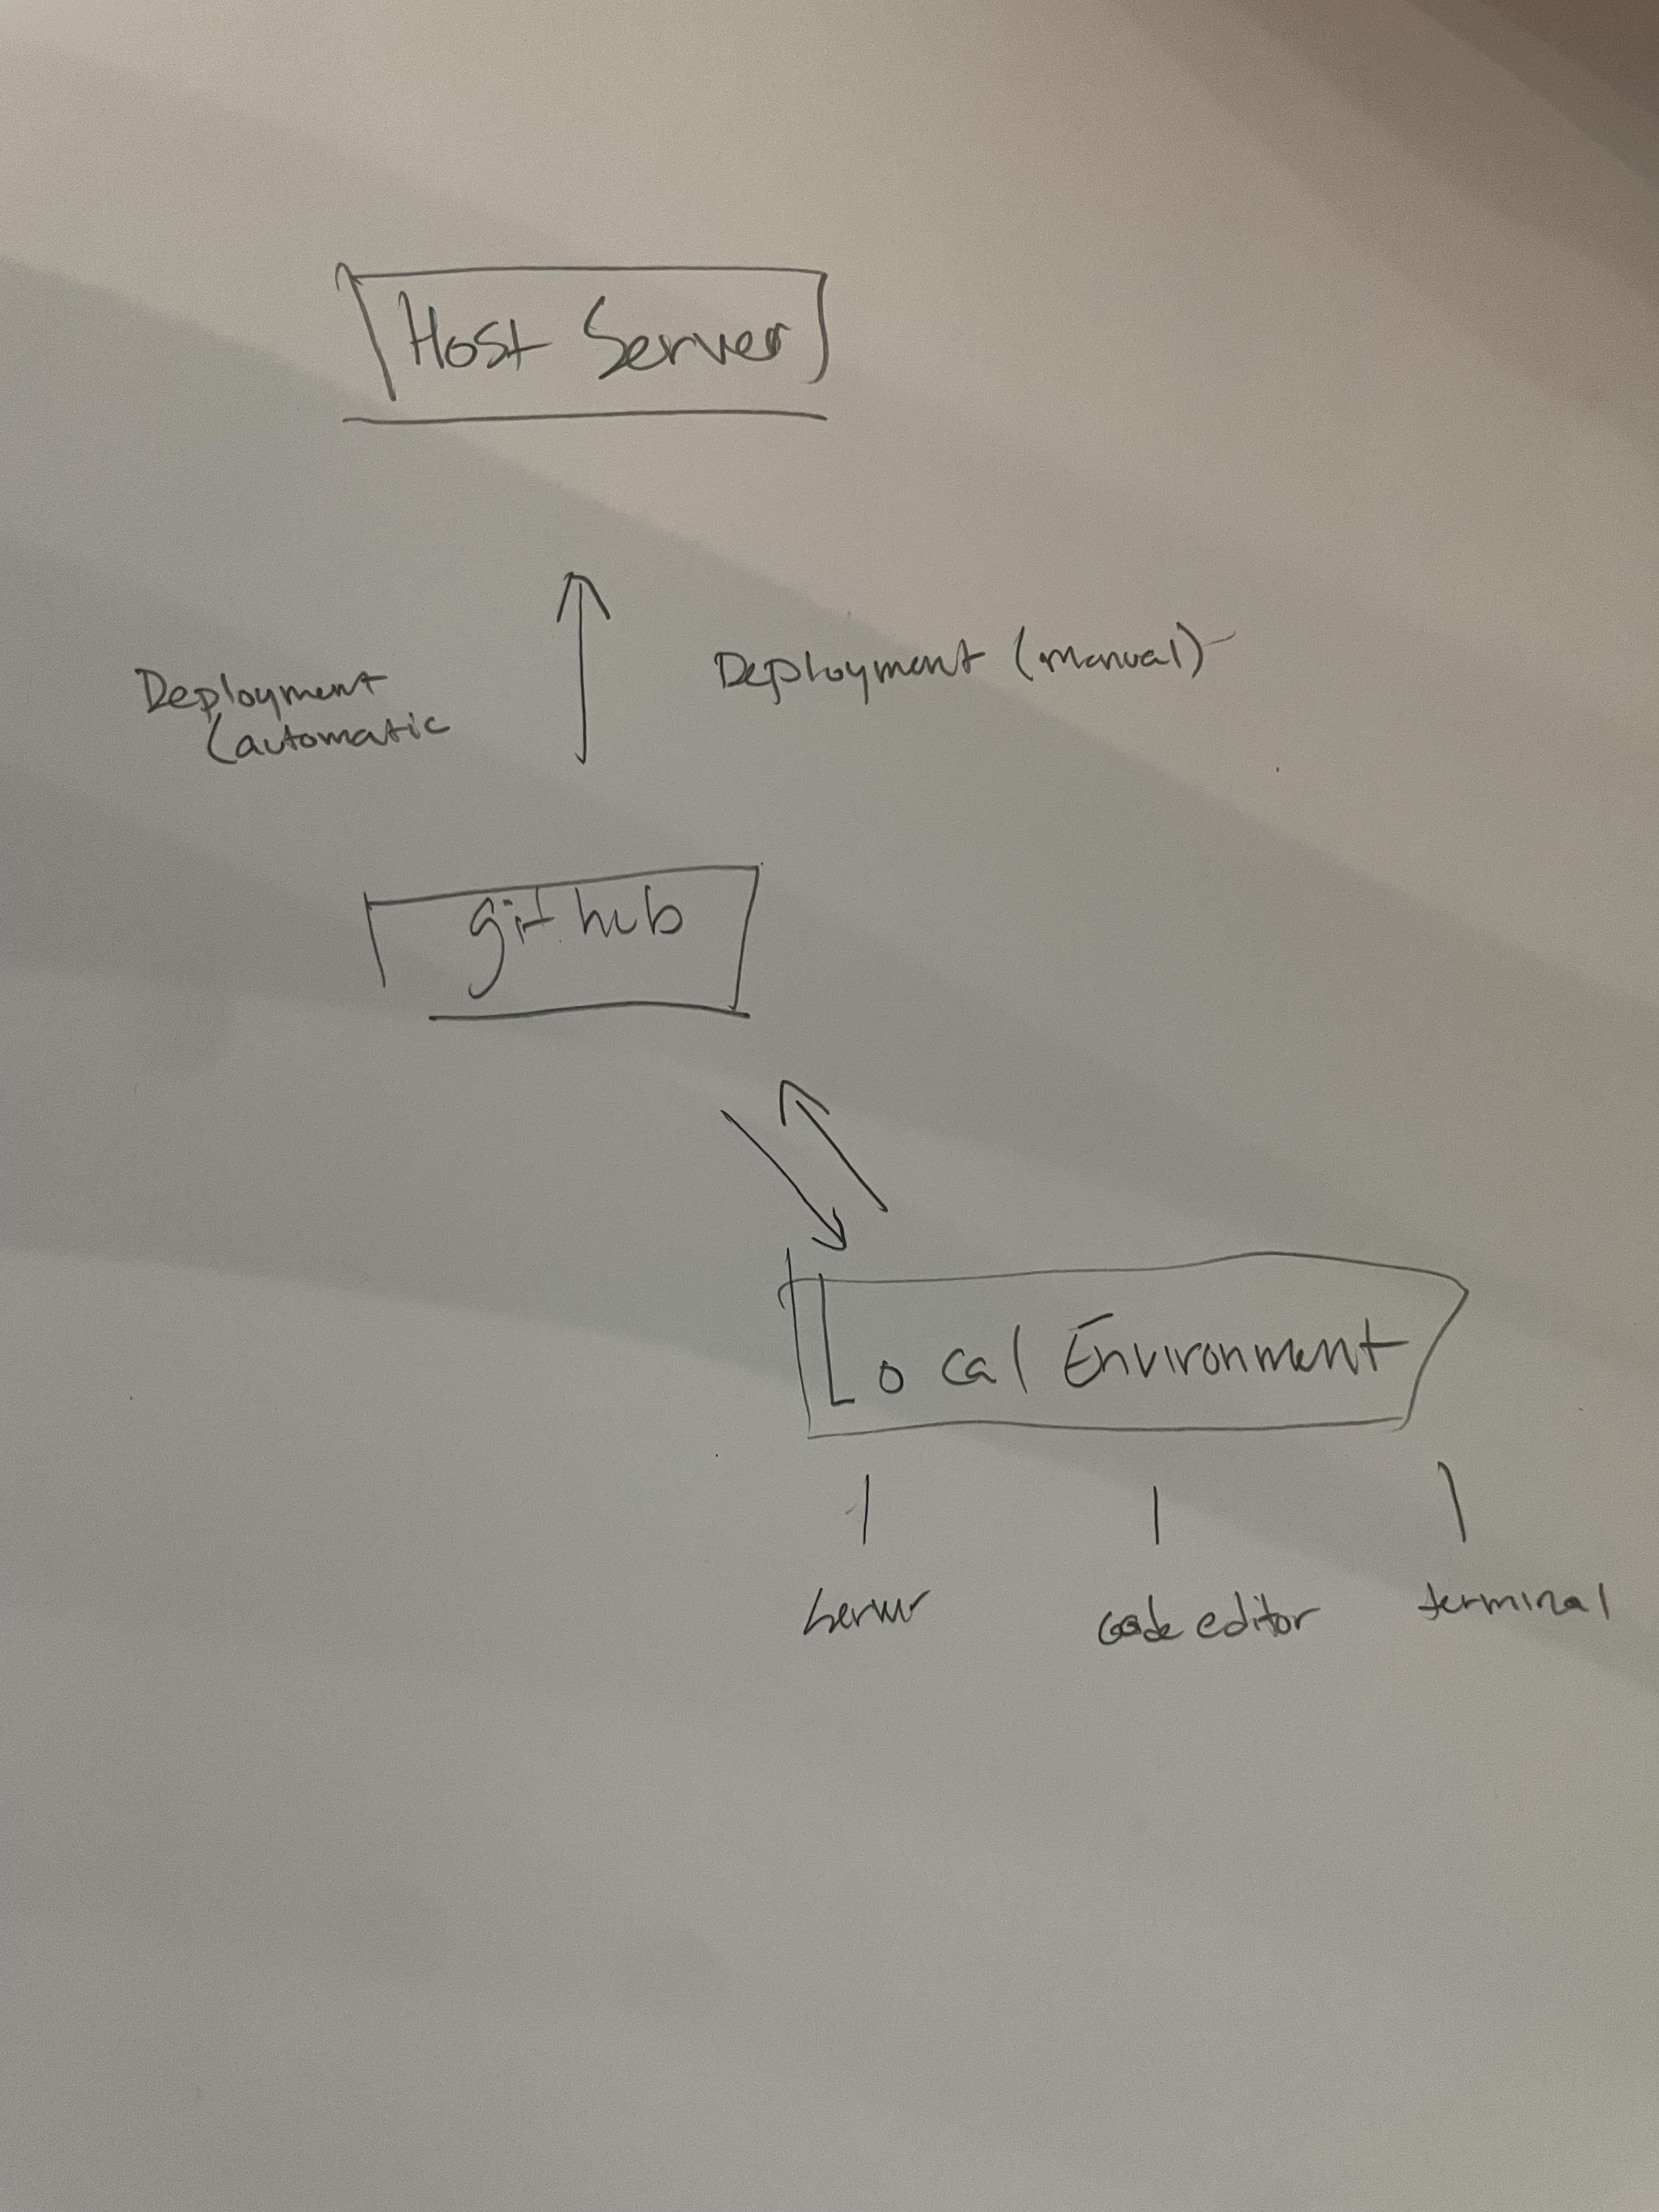 Host Server
Deployment (manual)
Deployment
(automatic
github
Local Environment
Server
code editor
terminal